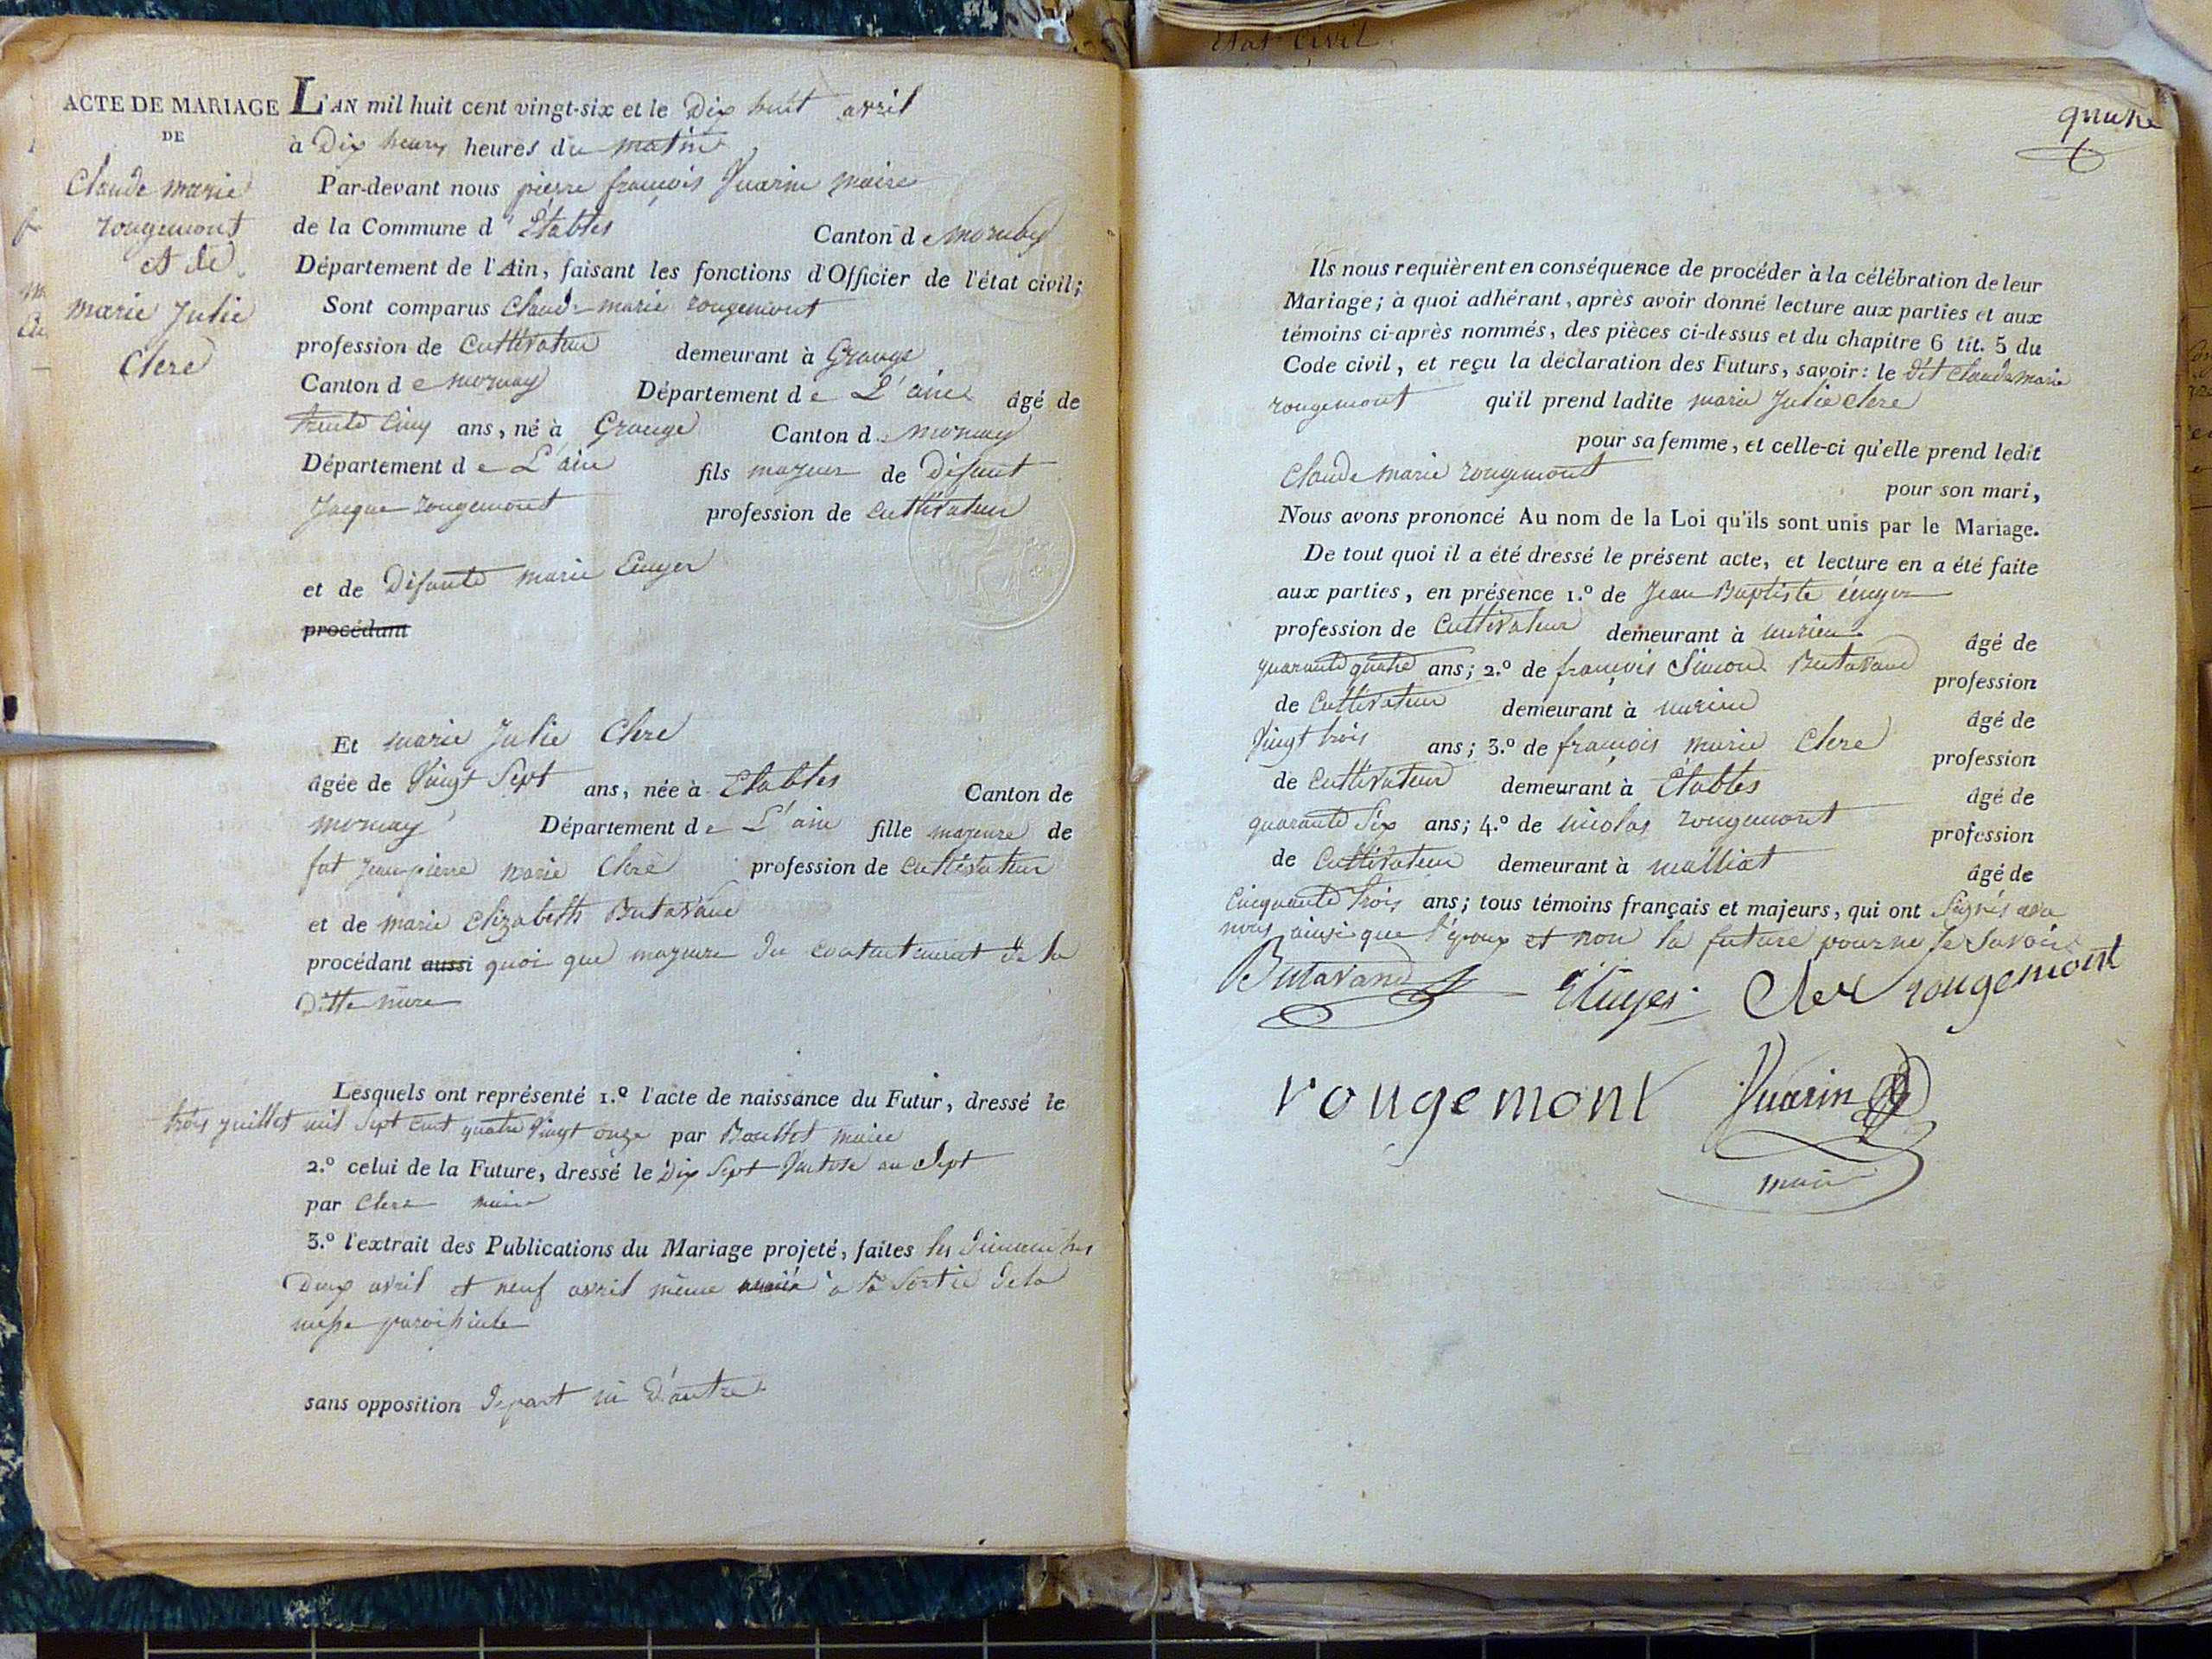 Etat Civil
ACTE DE MARIAGE
DE
Claude marie
rougemont
et de
marie Julie
Clere
L'AN mil huit cent vingt-six et le Dix huit avril
à Dix heures heures du matin
Par-devant nous pierre françois Vuarin maire
de la Commune d'Étables Canton de
Département de l'Ain, faisant les fonctions d'Officier de l'état civil;
Sont comparus Claude marie rougemont
profession de Cultivateur demeurant à Grange
Canton de mornay Département de L'ain âgé de
trente Cinq ans, né à Grange Canton d mornay
Département de L'ain fils majeur de Défunt
Jacque rougemont profession de Cultivateur
et de Défunte marie
procédant
Et marie Julie Clere
âgée de Vingt Sept ans, née à Etables Canton de
mornay Département de L'ain fille majeure de
fut Jean-pierre marie Clere profession de Cultivateur
et de marie Elizabeth Butavand
procédant aussi quoi que majeure du de la
Ditte mère
Lesquels ont représenté 1.º l'acte de naissance du Futur, dressé le
trois juillet mil Sept Cent quatre Vingt onze par maire
2.º celui de la Future, dressé le Dix Sept Ventose an Sept
par Clere maire
3.º l'extrait des Publications du Mariage projeté, faites les dimanches
Deux avril et neuf avril même année à la Sortie de la
messe paroissiale
sans opposition de part ni D'autre
quatre
Ils nous requièrent en conséquence de procéder à la célébration de leur
Mariage; à quoi adhérant, après avoir donné lecture aux parties et aux
témoins ci-après nommés, des pièces ci-dessus et du chapitre 6 tit. 5 du
Code civil, et reçu la déclaration des Futurs, savoir: le dit Claude marie
rougemont qu'il prend ladite marie Julie Clere
pour sa femme, et celle-ci qu'elle prend ledit
Claude marie rougemont
pour son mari,
Nous avons prononcé Au nom de la Loi qu'ils sont unis par le Mariage.
De tout quoi il a été dressé le présent acte, et lecture en a été faite
aux parties, en présence 1.º de Jean Baptiste
profession de Cultivateur demeurant à âgé de
quarante quatre ans; 2.º de françois Simon Butavand profession
de Cultivateur demeurant à âgé de
Vingt trois ans; 3.º de françois marie Clere profession
de Cultivateur demeurant à Étables âgé de
quarante Six ans; 4.º de nicolas rougemont profession
de Cultivateur demeurant à malliat âgé de
Cinquante trois ans; tous témoins français et majeurs, qui ont Signés avec
nous ainsi que l'époux et non la future pour ne le Savoir
Butavand Cler rougemont
rougemont Vuarin
maire